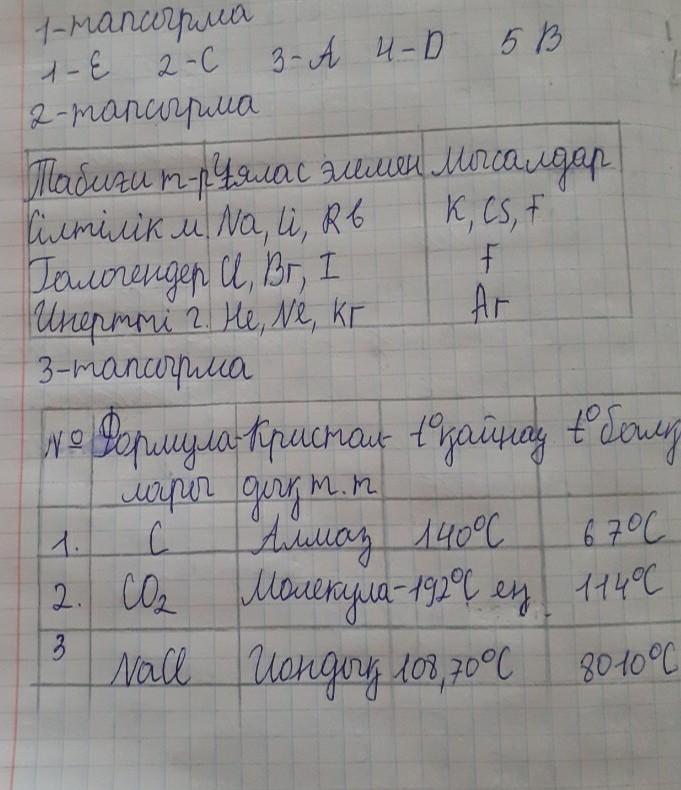 1-тапсырма
1-E 2-C 3-A 4-D 5 B
2-тапсырма
Табиғи т-р Ұялас элемен Мысалдар
Сілтілік м Na, Li, Rb K, Cs, F
Галогендер Cl, Br, I F
Инертті г. He, Ne, Kr Ar
3-тапсырма
№ Формула- Кристал- t°қайнау t°балқ
лары дық т.т
1. C Алмаз 140°C 67°C
2. CO2 Молекула -192°C ең 114°C
3 NaCl Иондық 108,70°C 8010°C